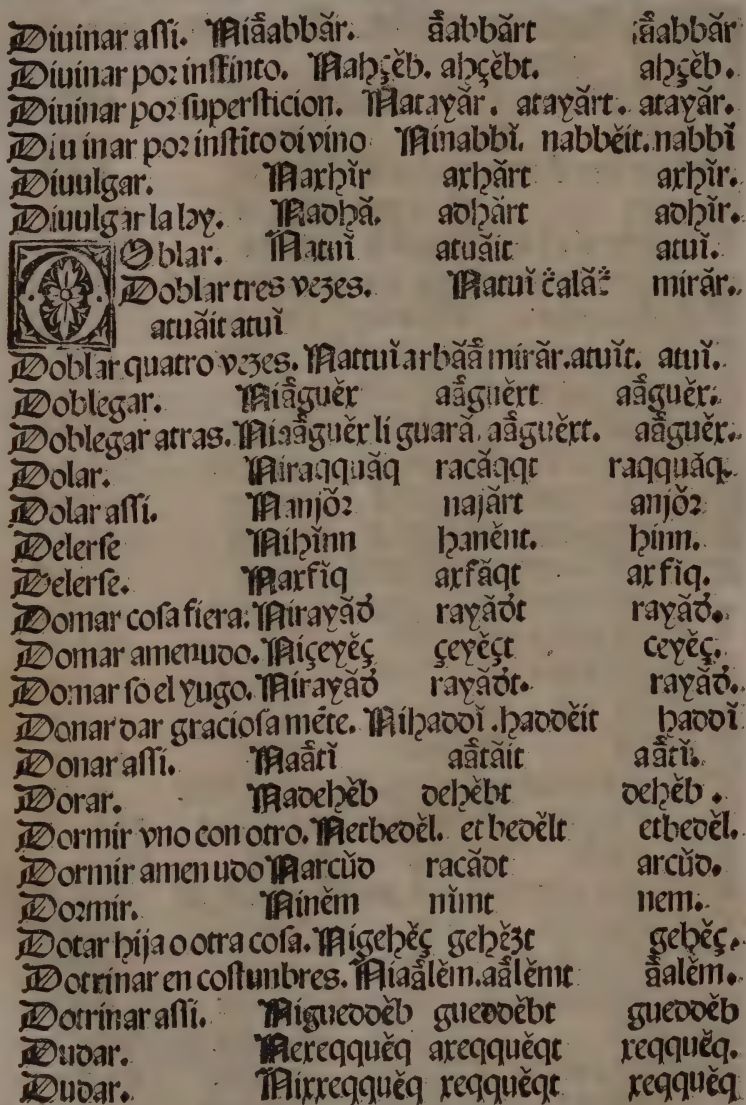 Diuinar assi. Niaâabbăr. aâabbărt aâabbăr
Diuinar por instinto. Nahçĕb. ahçĕbt. ahçĕb.
Diuinar por supersticion. Natayăr. atayărt. atayăr.
Diuinar por instĩto divino Ninabbĭ. nabbĕit. nabbĭ
Diuulgar. Naxhĭr axhărt axhĭr.
Diuulgar la ley. Nadhă. adhărt adhĭr.
DOblar. Natuĭ atuăit atuĭ.
Doblar tres vezes. Natuĭ čală mirăr.
atuăit atuĭ
Doblar quatro vezes. Nattuĭ arbăâ mirăr. atuĭt. atuĭ.
Doblegar. Niâguĕx aâguĕxt aâguĕx.
Doblegar atras. Niaâguĕx li guară. aâguĕxt. aâguĕx.
Dolar. Niraqquăq racăqqt raqquăq.
Dolar assi. Nanjŏr najărt anjŏr
Delerse Nihĭnn hanĕnt. hinn.
Delerse. Naxfĭq axfăqt axfiq.
Domar cosa fiera. Nirayăd rayădt rayăd.
Domar amenudo. Niçeyĕç çeyĕçt ceyĕç.
Domar so el yugo. Nirayăd rayădt. rayăd.
Donar dar graciosa mẽte. Nihaddĭ. haddĕit haddĭ
Donar assi. Naâtĭ aâtăit aâtĭ.
Dorar. Nadehĕb dehĕbt dehĕb.
Dormir vno con otro. Netbedĕl. etbedĕlt etbedĕl.
Dormir amenudo Narcŭd racădt arcŭd.
Dormir. Ninĕm nĭmt nem.
Dotar hija o otra cosa. Nigehĕç gehĕzt gehĕç.
Dotrinar en costunbres. Niaâlĕm. aâlĕmt âalĕm.
Dotrinar assi. Nigueddĕb gueddĕbt gueddĕb
Dudar. Nexeqquĕq axeqquĕqt xeqquĕq.
Dudar. Nixxeqquĕq xeqquĕqt xeqquĕq